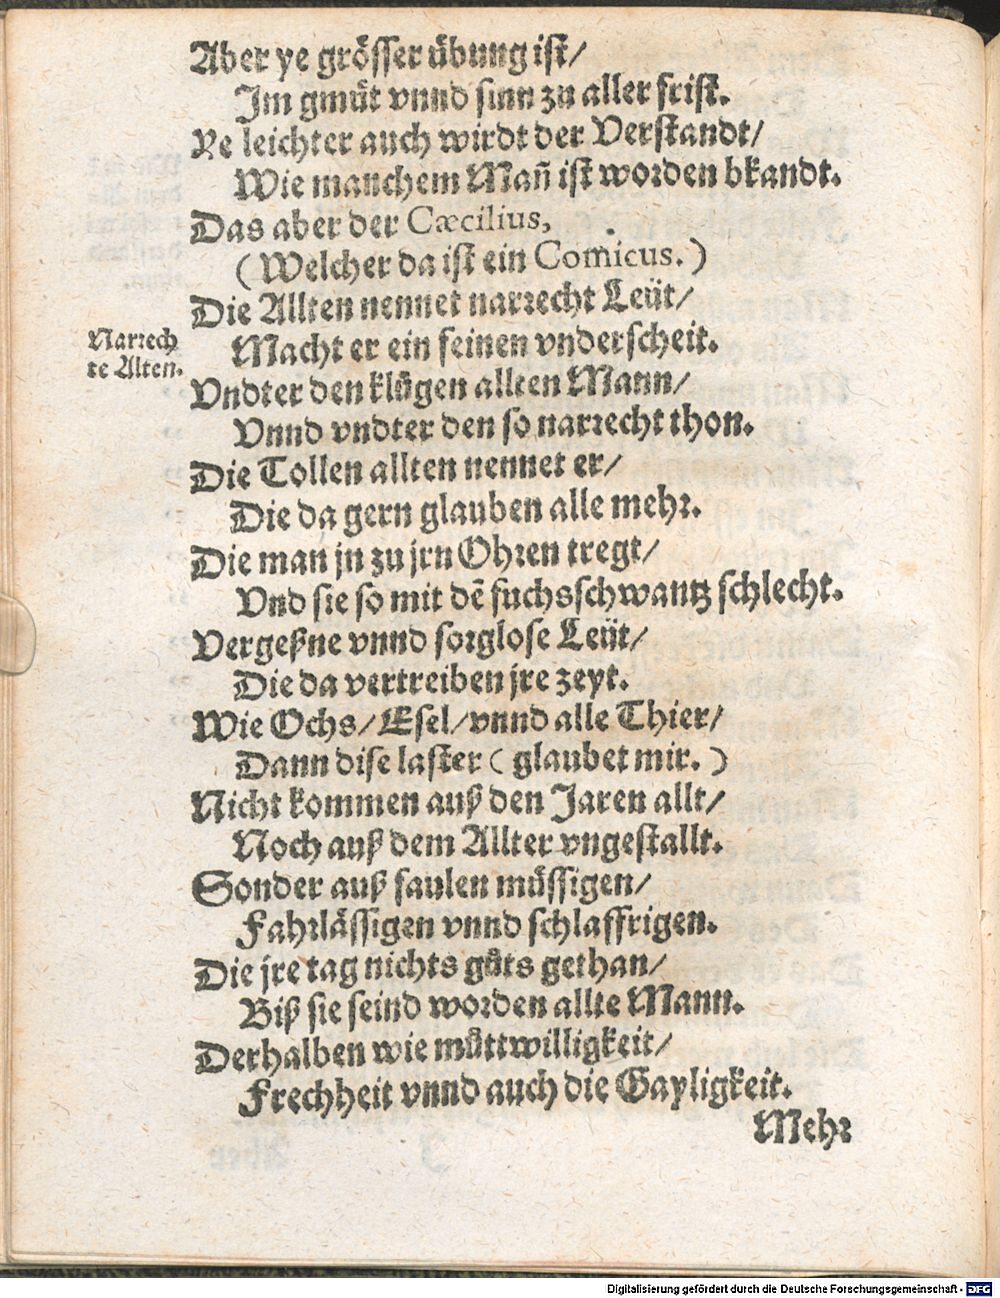 Aber ye grösser übung ist/
Im gmüt vnnd sinn zu aller frist.
Ye leichter auch wirdt der Verstandt/
Wie manchem Mañ ist worden bkandt.
Das aber der Cæcilius,
(Welcher da ist ein Comicus.)
Die Allten nennet narrecht Leüt/
Narrech
te Alten.
Macht er ein feinen vnderscheit.
Vndter den klůgen allten Mann/
Vnnd vndter den so narrecht thon.
Die Tollen allten nennet er/
Die da gern glauben alle mehr.
Die man jn zu jrn Ohren tregt/
Vnd sie so mit dē fuchsschwantz schlecht.
Vergeßne vnnd sorglose Leüt/
Die da vertreiben jre zeyt.
Wie Ochs/Esel/vnnd alle Thier/
Dann dise laster (glaubet mir.)
Nicht kommen auß den Jaren allt/
Noch auß dem Allter vngestallt.
Sonder auß faulen müssigen/
Fahrlässigen vnnd schlaffrigen.
Die jre tag nichts gůts gethan/
Biß sie seind worden allte Mann.
Derhalben wie můttwilligkeit/
Frechheit vnnd auch die Gayligkeit.
Mehr
Digitalisierung gefördert durch die Deutsche Forschungsgemeinschaft - DFG